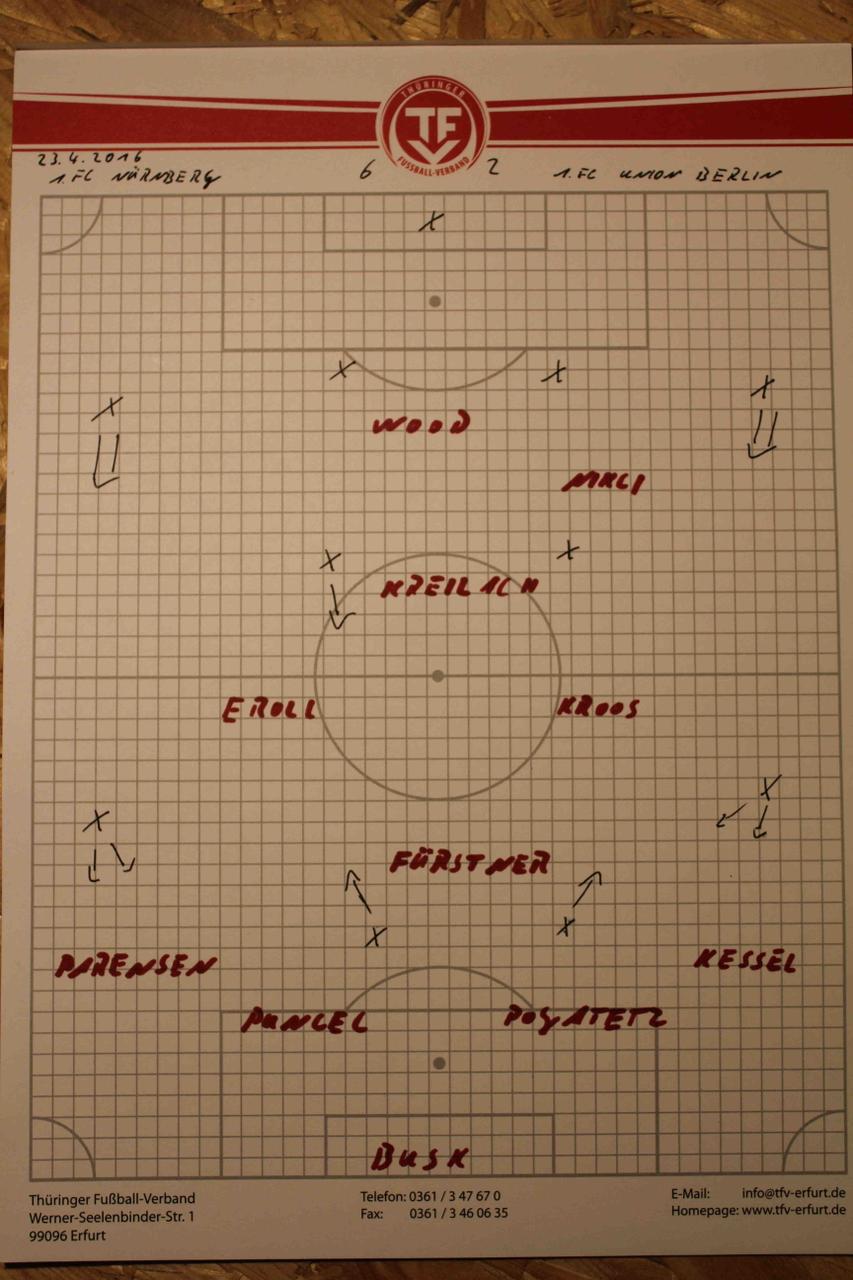 THÜRINGER
TF
FUSSBALL-VERBAND
23.4.2016
1.FC NÜRNBERG 6 2 1.FC UNION BERLIN
X
X X
X X
WOOD
X X
KREILACH
EROLL KROOS
X X
FÜRSTNER
X X
PARENSEN KESSEL
PUNCEL POGATETZ
BUSK
Thüringer Fußball-Verband
Werner-Seelenbinder-Str. 1
99096 Erfurt
Telefon: 0361 / 3 47 67 0
Fax: 0361 / 3 46 06 35
E-Mail: info@tfv-erfurt.de
Homepage: www.tfv-erfurt.de